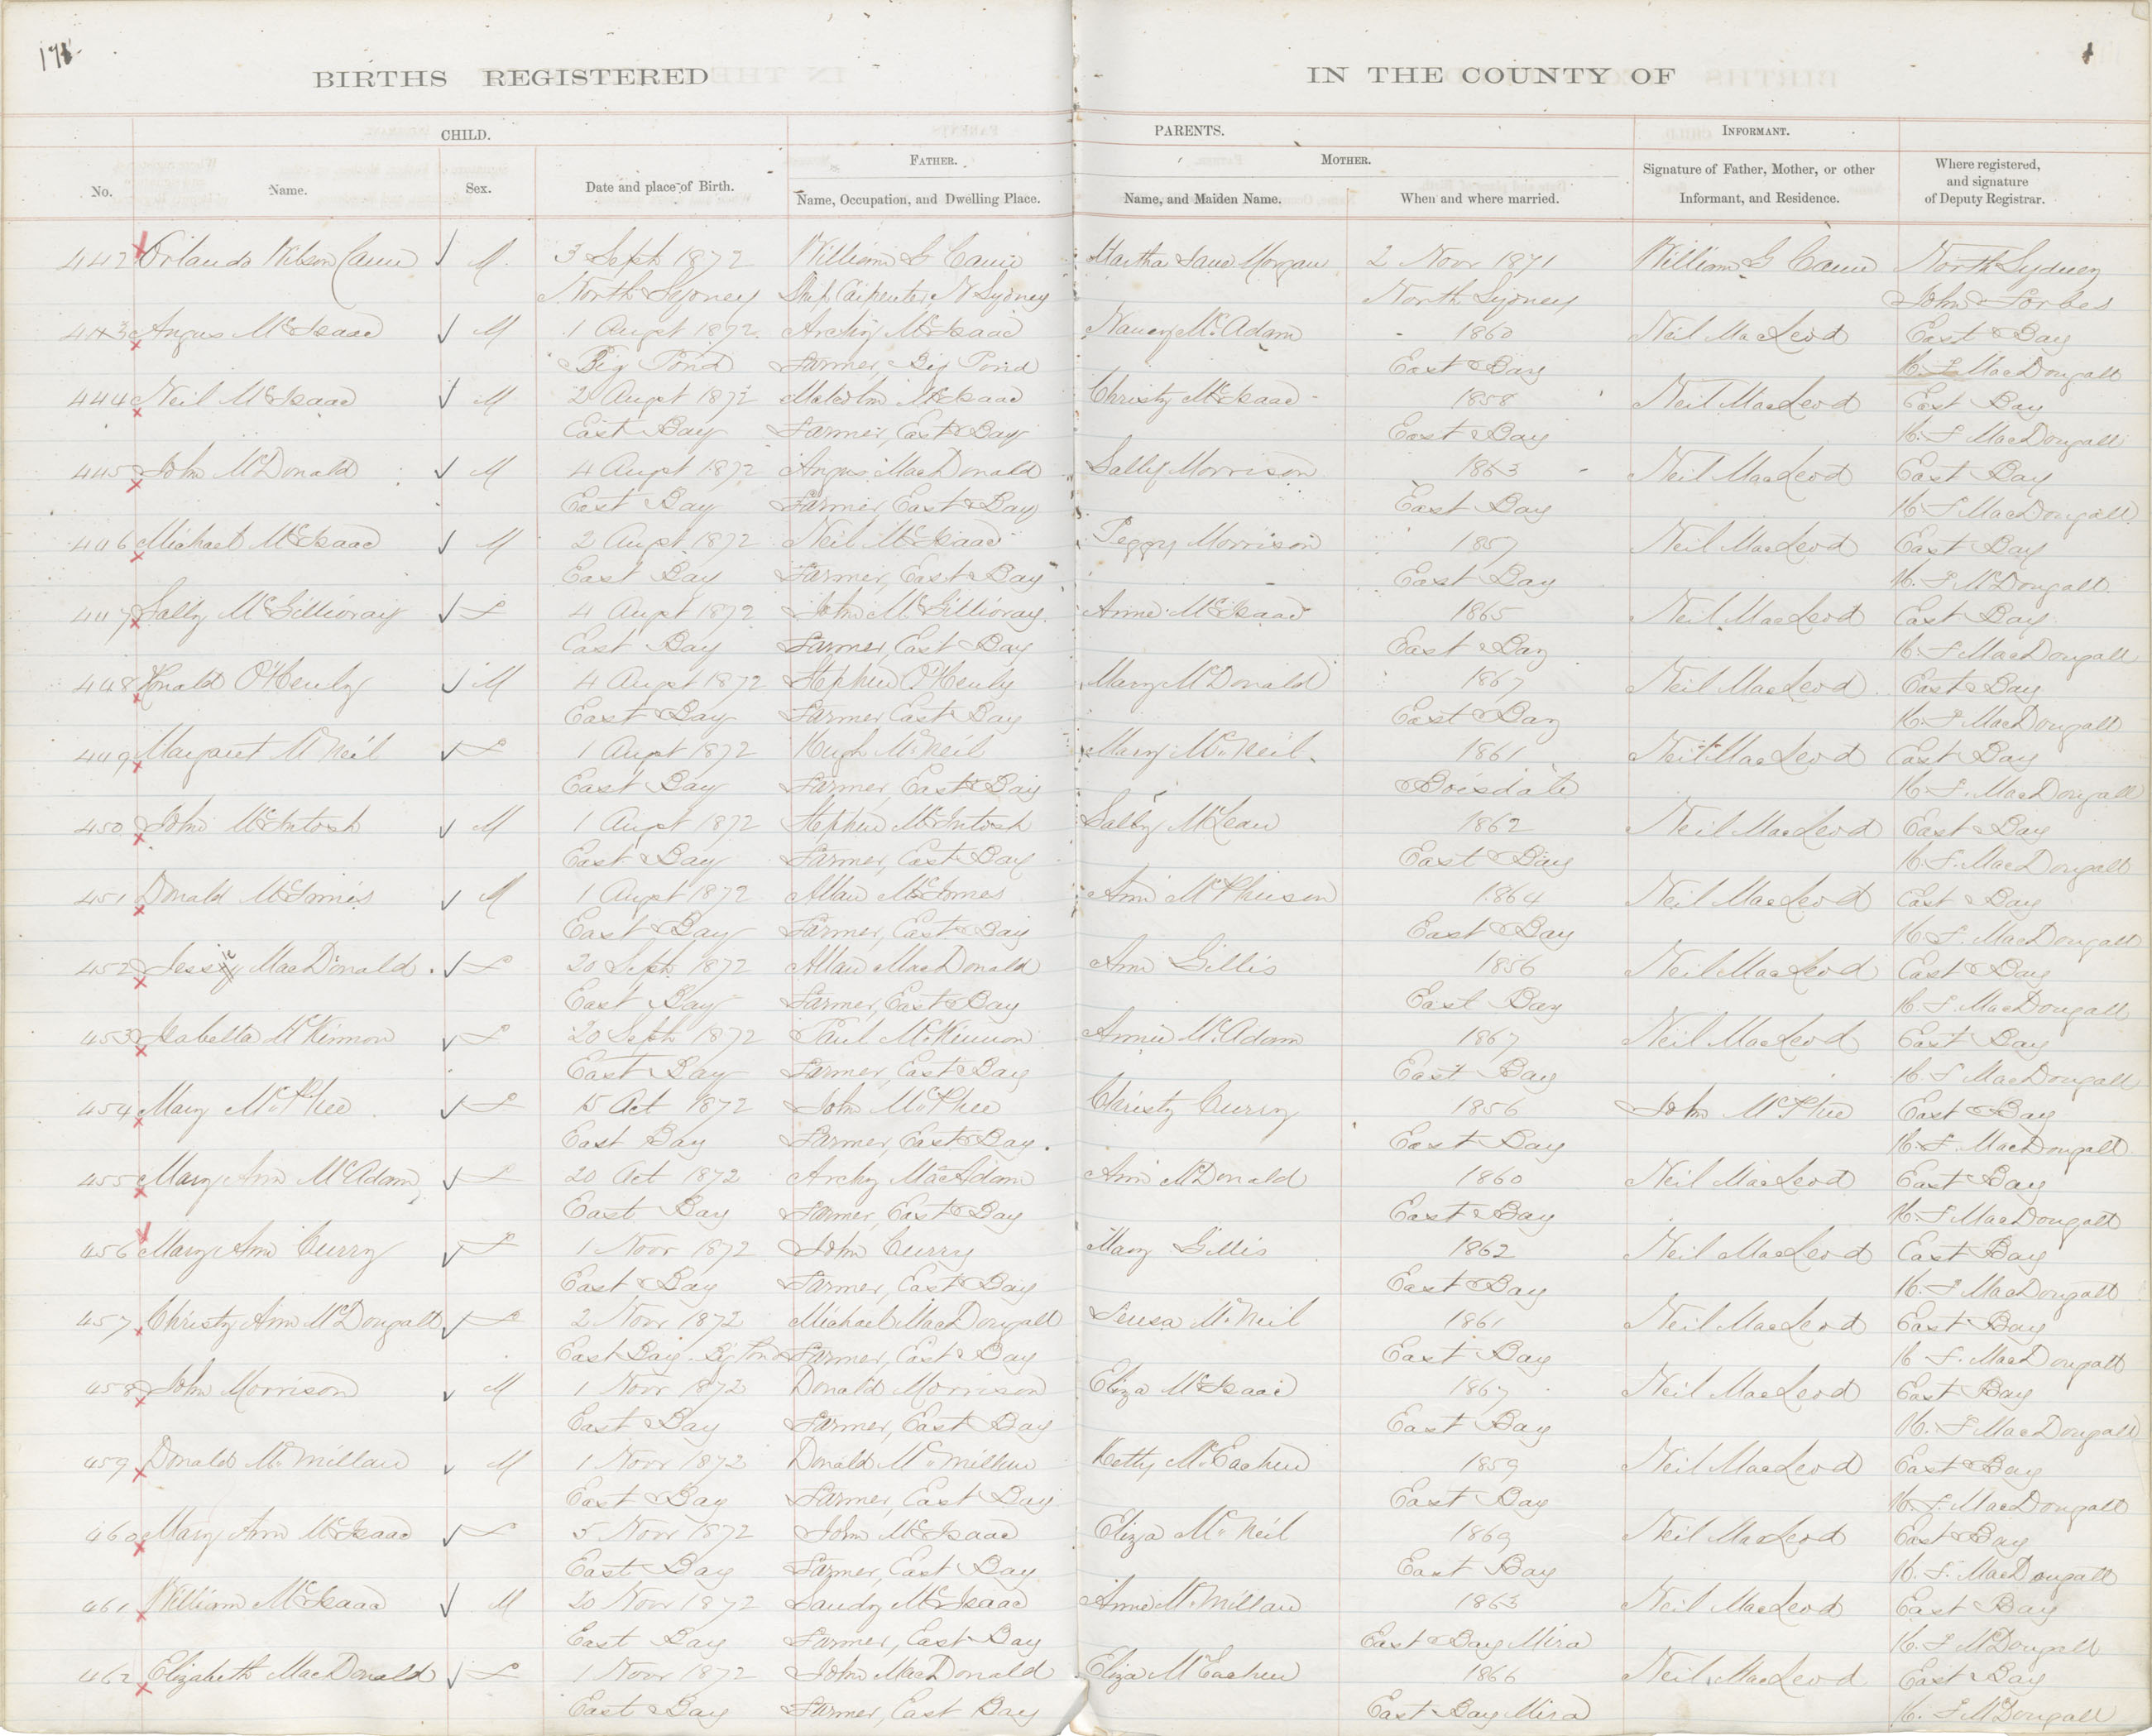 178
BIRTHS REGISTERED IN THE COUNTY OF
CHILD. PARENTS. INFORMANT.
FATHER. MOTHER.
No. Name. Sex. Date and place of Birth. Name, Occupation, and Dwelling Place. Name, and Maiden Name. When and where married. Signature of Father, Mother, or other Informant, and Residence. Where registered, and signature of Deputy Registrar.
442 Orlando Wilson Cann M. 3 Sept 1872 William G Cann Martha Morgan 2 Novr 1871 William G Cann North Sydney
North Sydney Ship Carpenter, N Sydney North Sydney John Forbes
443 Angus McIsaac M 1 Augst 1872 Archy McIsaac Nancy McAdam 1860 Neil MacLeod East Bay
Big Pond Farmer, Big Pond East Bay MacDougall
444 Neil McIsaac M 2 Augst 1872 Malcolm McIsaac Christy McIsaac 1858 Neil MacLeod East Bay
East Bay Farmer, East Bay East Bay H. F MacDougall
445 John McDonald M 4 Augst 1872 Angus MacDonald Sally Morrison 1863 Neil MacLeod East Bay
East Bay Farmer East Bay East Bay H. F MacDougall
446 Michael McIsaac M 2 Augst 1872 Neil McIsaac Peggy Morrison 1857 Neil MacLeod East Bay
East Bay Farmer, East Bay East Bay H. F McDougall
447 Sally McGillivray F 4 Augst 1872 John McGillivray Anne McIsaac 1865 Neil MacLeod East Bay
East Bay Farmer, East Bay East Bay H. F MacDougall
448 Ronald O'Henly M 4 Augst 1872 Stephen O'Henly Mary McDonald 1867 Neil MacLeod East Bay
East Bay Farmer East Bay East Bay H. F MacDougall
449 Margaret McNeil F 1 Augst 1872 Hugh McNeil Mary McNeil 1861 Neil MacLeod East Bay
East Bay Farmer, East Bay Boisdale H F. MacDougall
450 John McIntosh M 1 Augst 1872 Stephen McIntosh Sally McLean 1862 Neil MacLeod East Bay
East Bay Farmer, East Bay East Bay H. F. MacDougall
451 Donald McInnis M 1 Augst 1872 Allan McInnes Ann McPhieson 1864 Neil MacLeod East Bay
East Bay Farmer, East Bay East Bay H F. MacDougall
452 Jessie MacDonald F 20 Sept 1872 Allan MacDonald Ann Gillis 1856 Neil MacLeod East Bay
East Bay Farmer, East Bay East Bay H. F MacDougall
453 Isabella McKinnon F 20 Sept 1872 Paul McKinnon Annie McAdam 1867 Neil MacLeod East Bay
East Bay Farmer, East Bay East Bay H. F MacDougall
454 Mary McPhee F 15 Oct 1872 John McPhee Christy Curry 1856 John McPhee East Bay
East Bay Farmer, East Bay. East Bay H. F. MacDougall
455 Mary Ann McAdam F 20 Oct 1872 Archy MacAdam Ann McDonald 1860 Neil MacLeod East Bay
East Bay Farmer, East Bay East Bay H. F MacDougall
456 Mary Ann Curry F 1 Novr 1872 John Curry Mary Gillis 1862 Neil MacLeod East Bay
East Bay Farmer, East Bay East Bay H. F MacDougall
457 Christy Ann McDougall F 2 Novr 1872 Michael MacDougall McNeil 1861 Neil MacLeod East Bay
East Bay Big Pond Farmer, East Bay East Bay H F. MacDougall
458 John Morrison M 1 Novr 1872 Donald Morrison Eliza McIsaac 1867 Neil MacLeod East Bay
East Bay Farmer, East Bay East Bay H. F MacDougall
459 Donald McMillan M 1 Novr 1872 Donald McMillan Ketty McEachen 1859 Neil MacLeod East Bay
East Bay Farmer, East Bay East Bay H. F. MacDougall
460 Mary Ann McIsaac F 5 Novr 1872 John McIsaac Eliza McNeil 1869 Neil MacLeod East Bay
East Bay Farmer, East Bay East Bay H. F. MacDougall
461 William McIsaac M 20 Novr 1872 Sandy McIsaac Anne McMillan 1863 Neil MacLeod East Bay
East Bay Farmer, East Bay East Bay Mira H. F McDougall
462 Elizabeth MacDonald F 1 Novr 1872 John MacDonald Eliza McEachen 1866 Neil MacLeod East Bay
East Bay Farmer, East Bay East Bay Mira H. F McDougall